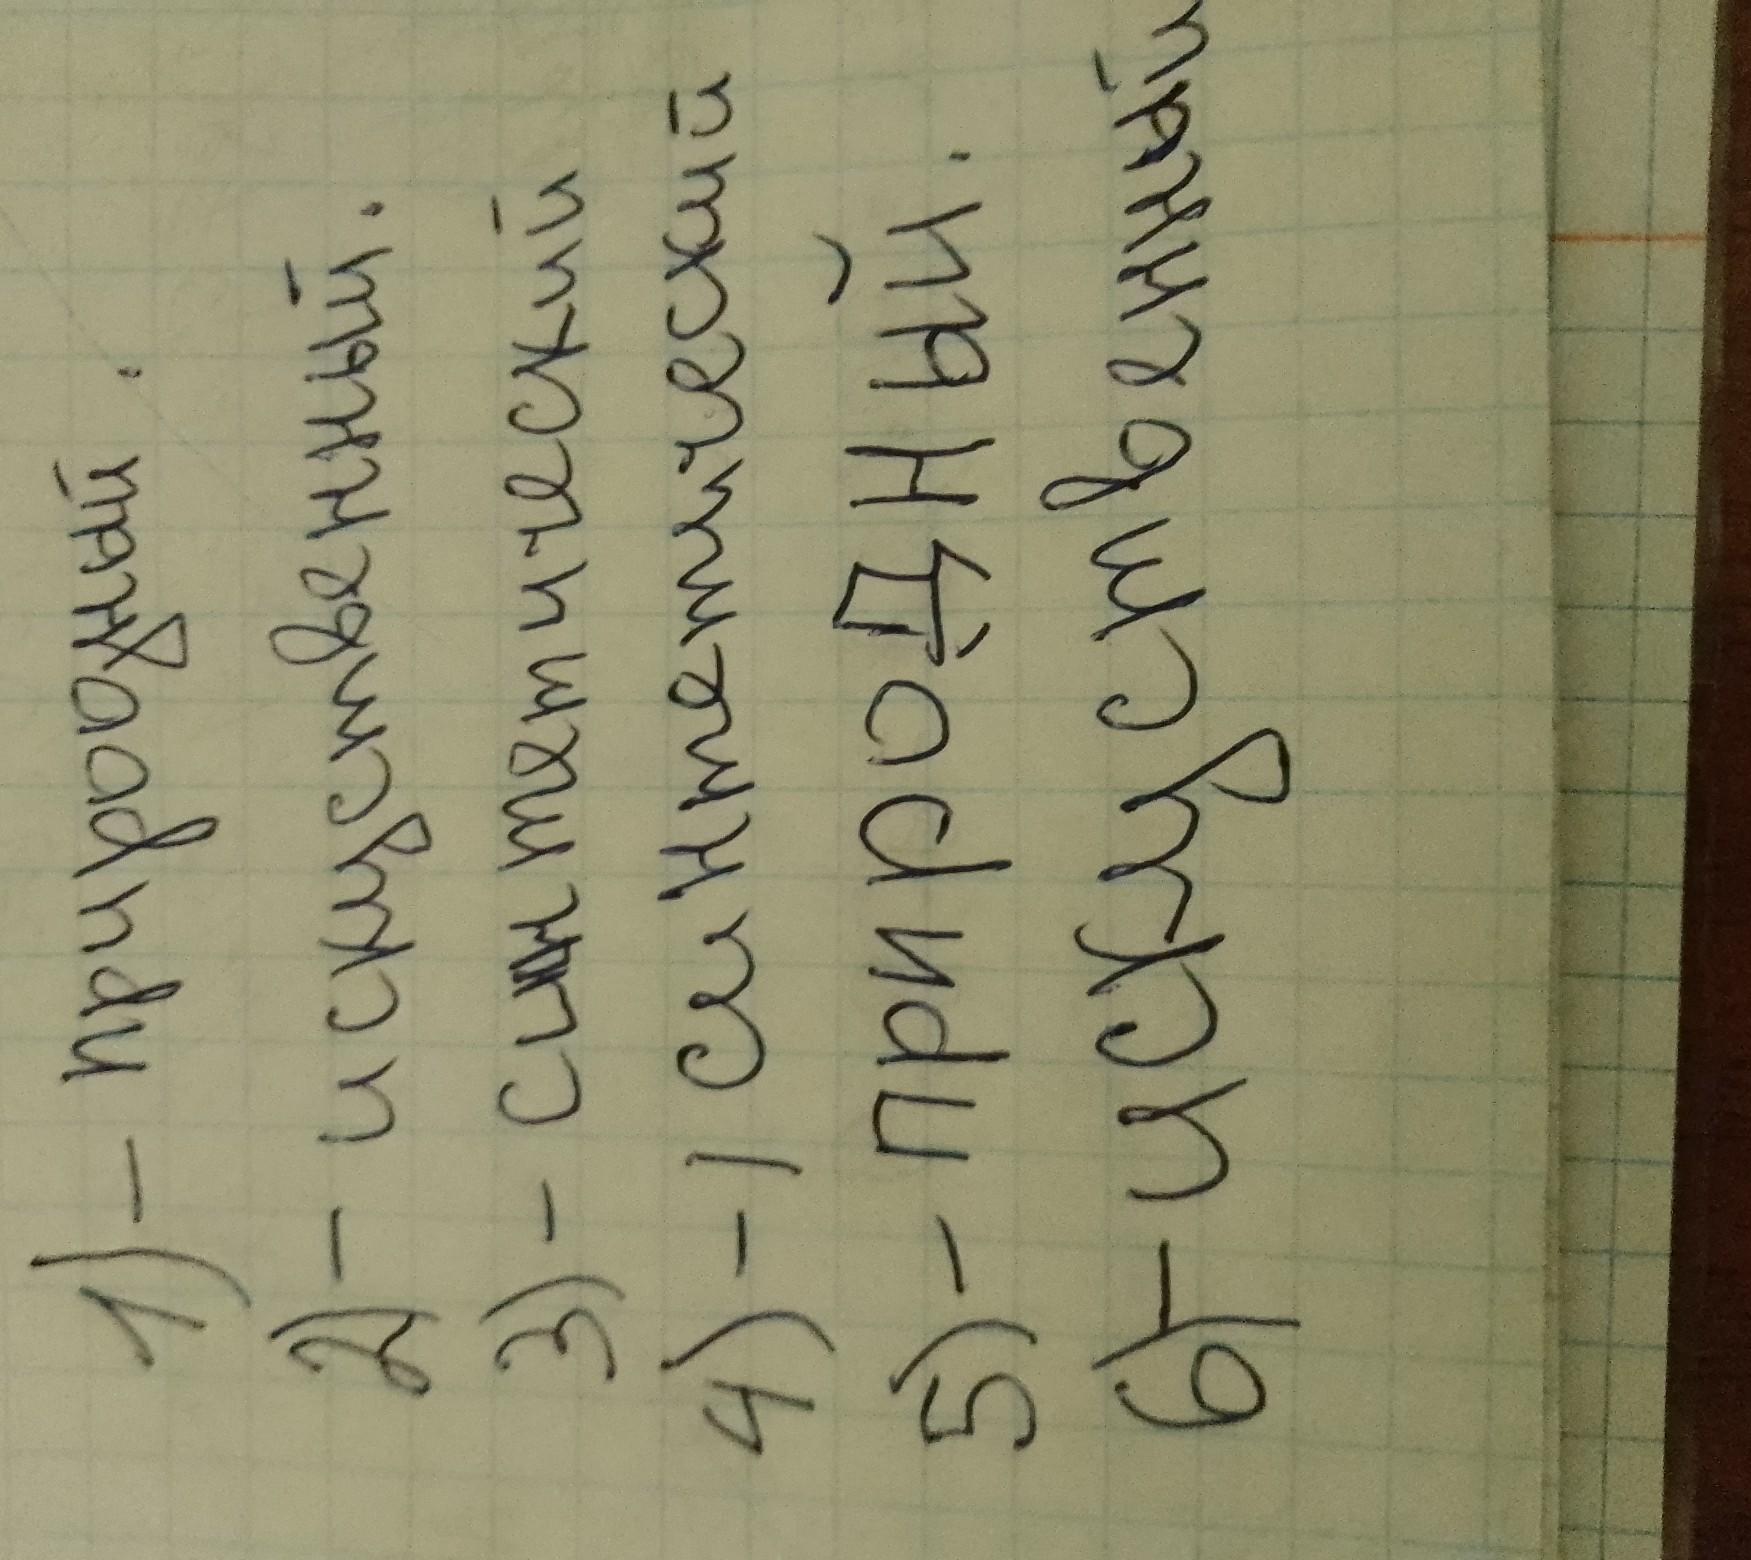 1) - природный.
2) - искуственный.
3) - синтетический
4) - синтетический
5) - ПРИРОДНЫЙ.
6) - искуственный